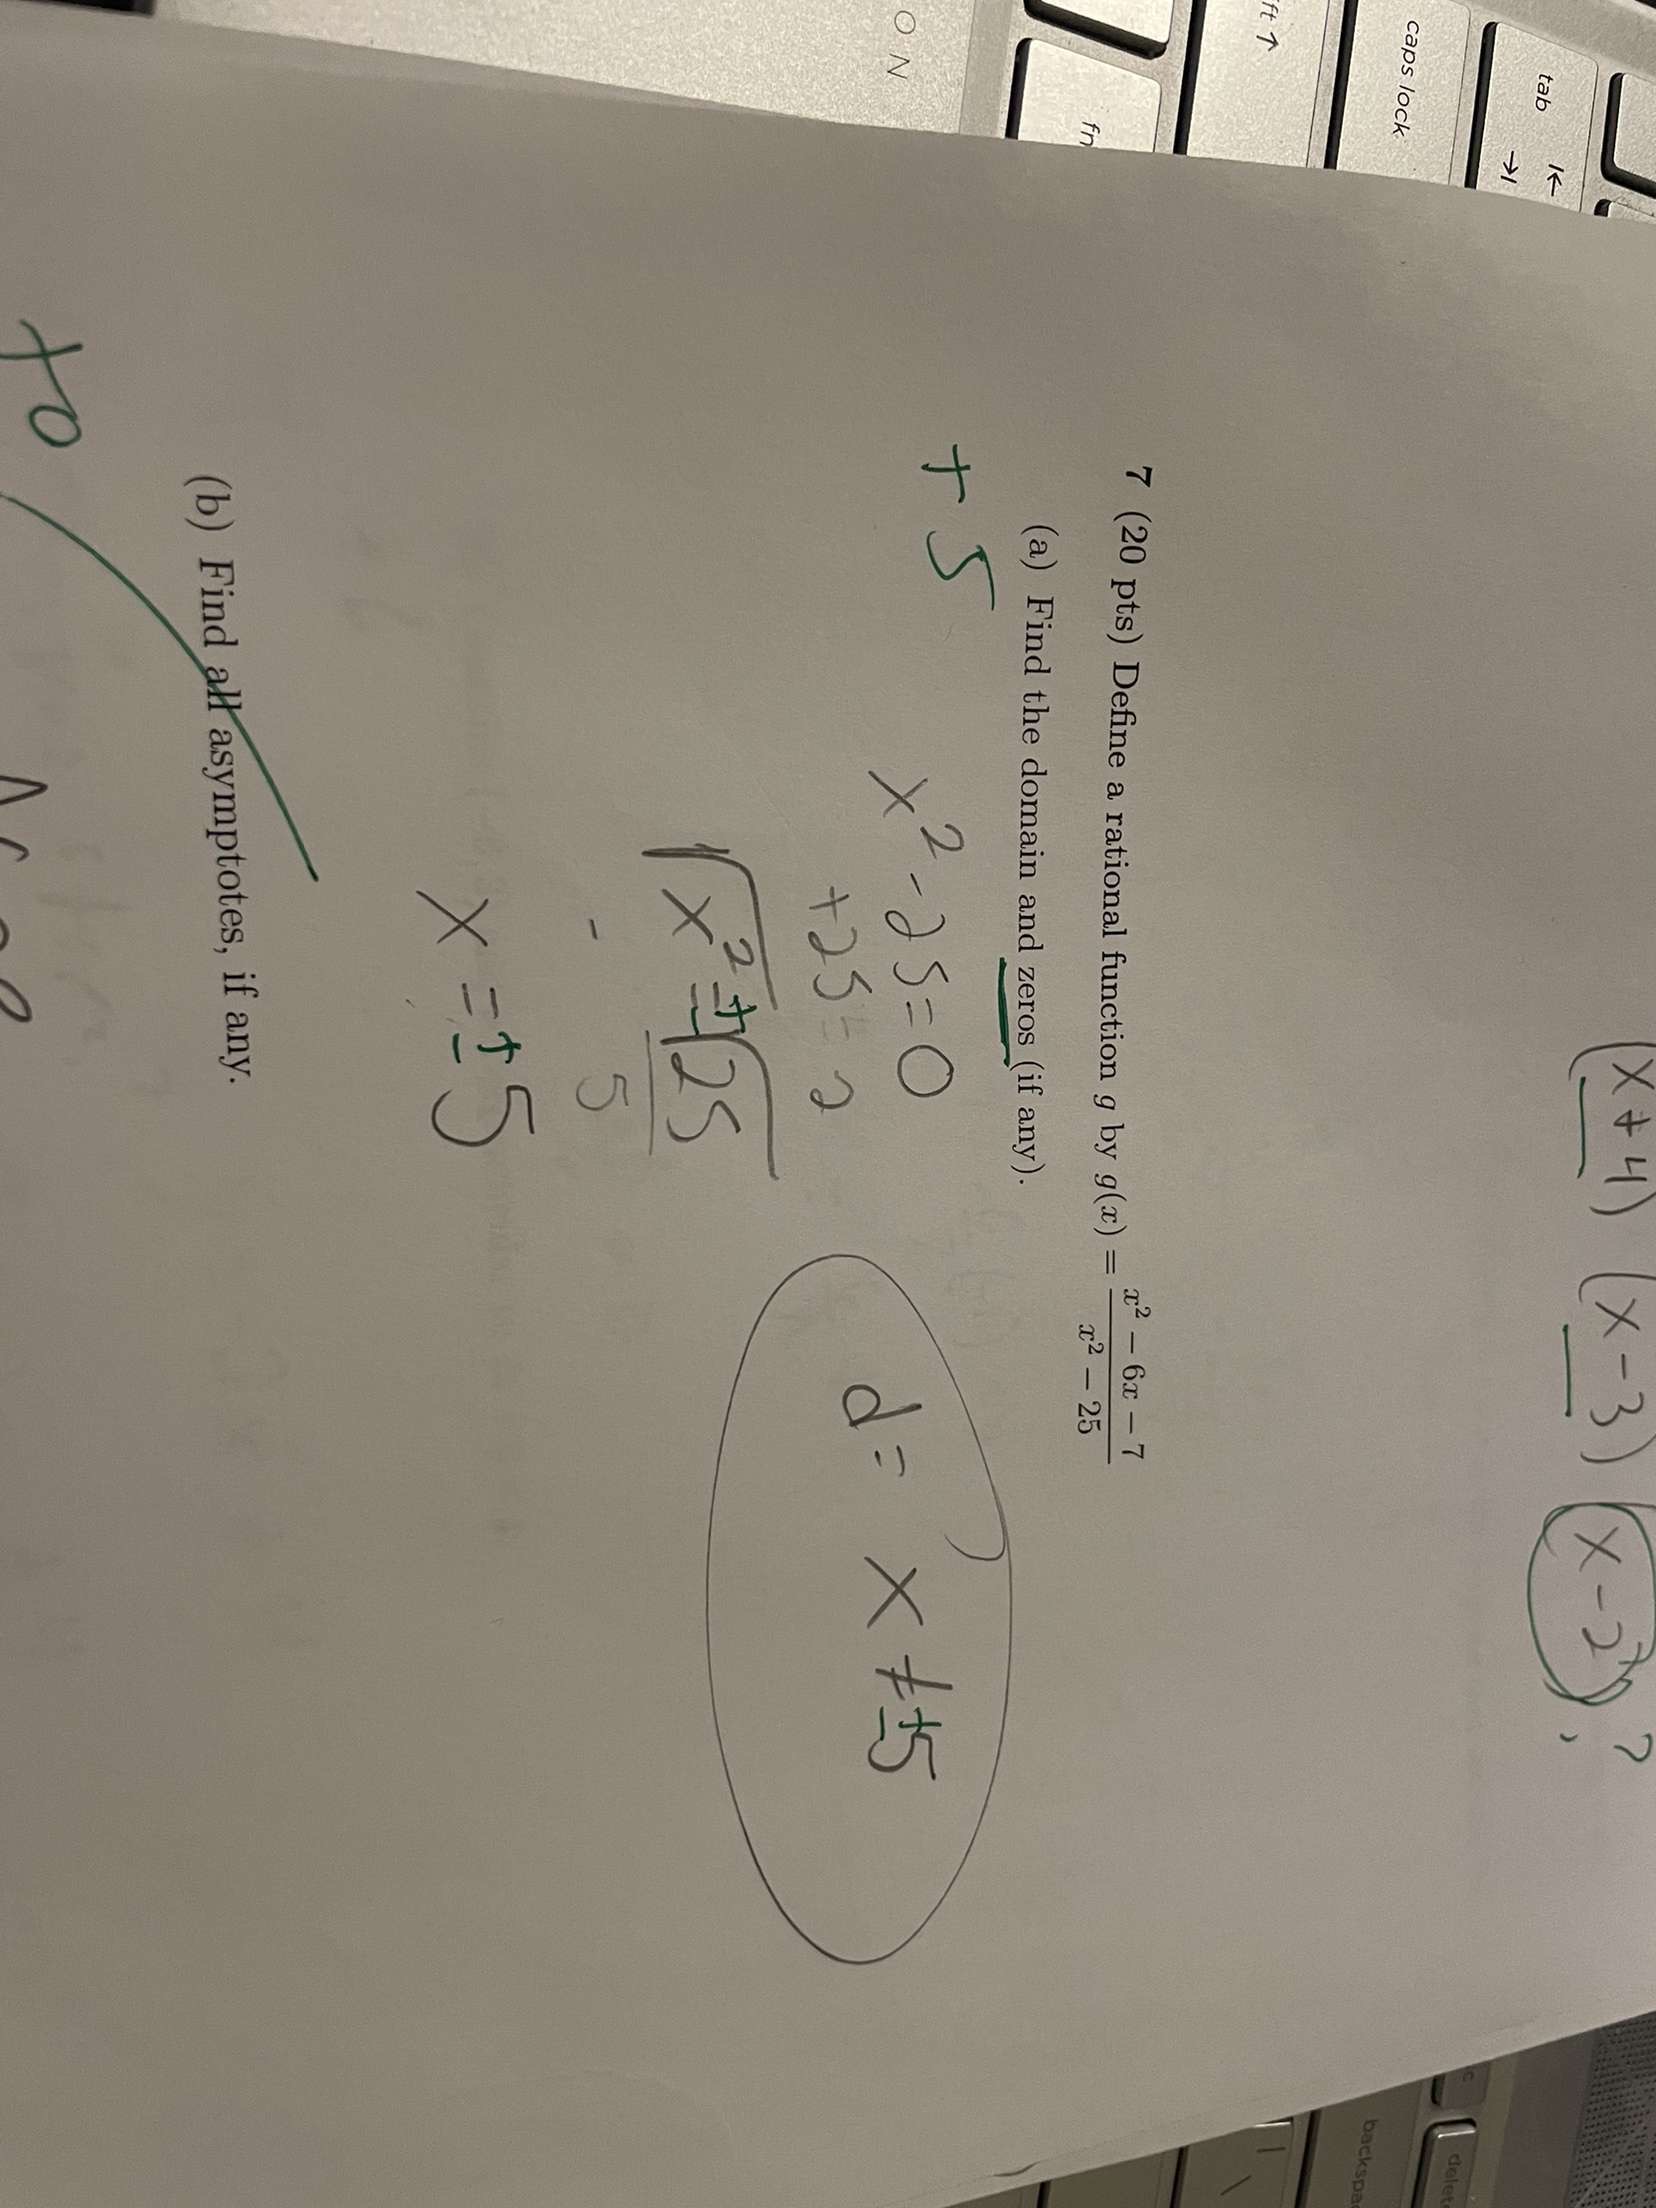 (x+4) (x-3) (x-2) ?
7 (20 pts) Define a rational function g by g(x) = \frac{x² − 6x − 7}{x² − 25}
(a) Find the domain and zeros (if any).
+5
x² - 25 = 0
+25 = 2
√x² = ±√25
- 5
x = ± 5
d = x ≠ ±5
(b) Find all asymptotes, if any.
+0
tab
caps lock
ft ↑
fn
O N
delet
backspa
\